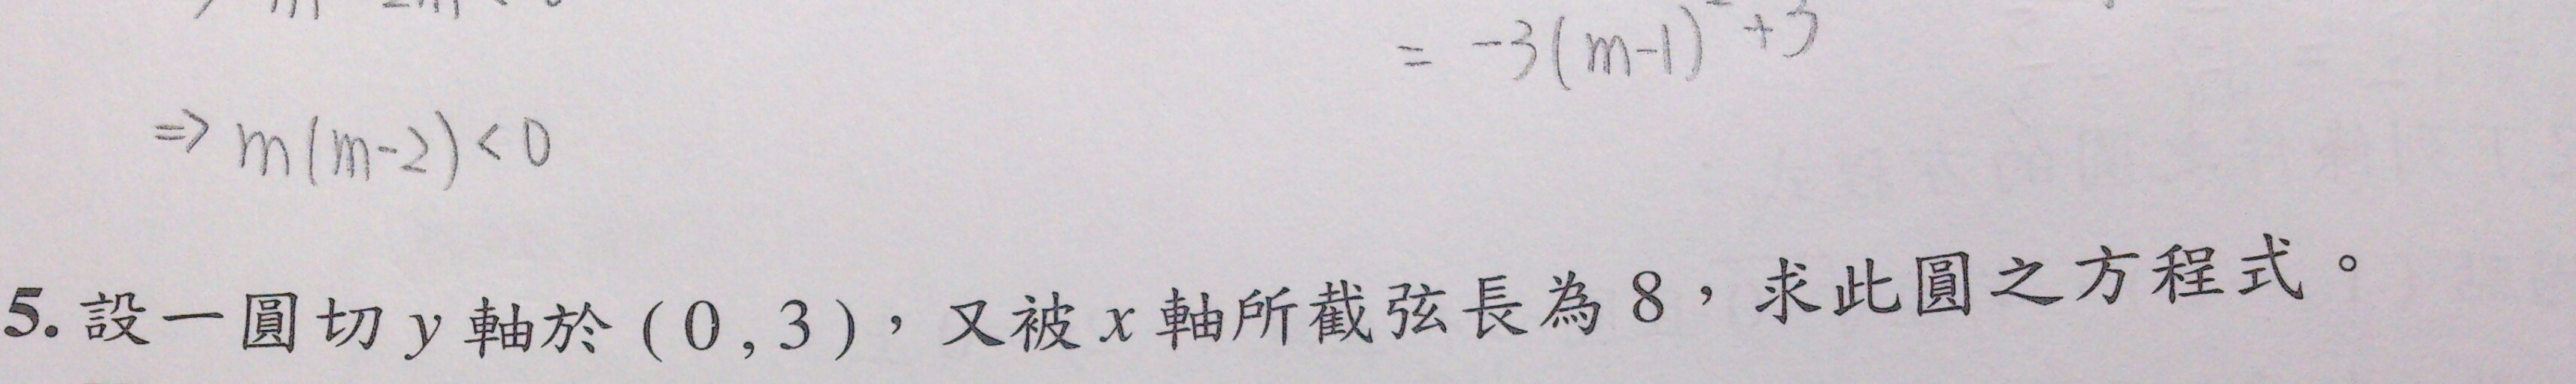 = -3(m-1)² + 3
⇒ m(m-2) < 0
5. 設一圓切 y 軸於 ( 0 , 3 ) ，又被 x 軸所截弦長為 8 ，求此圓之方程式。